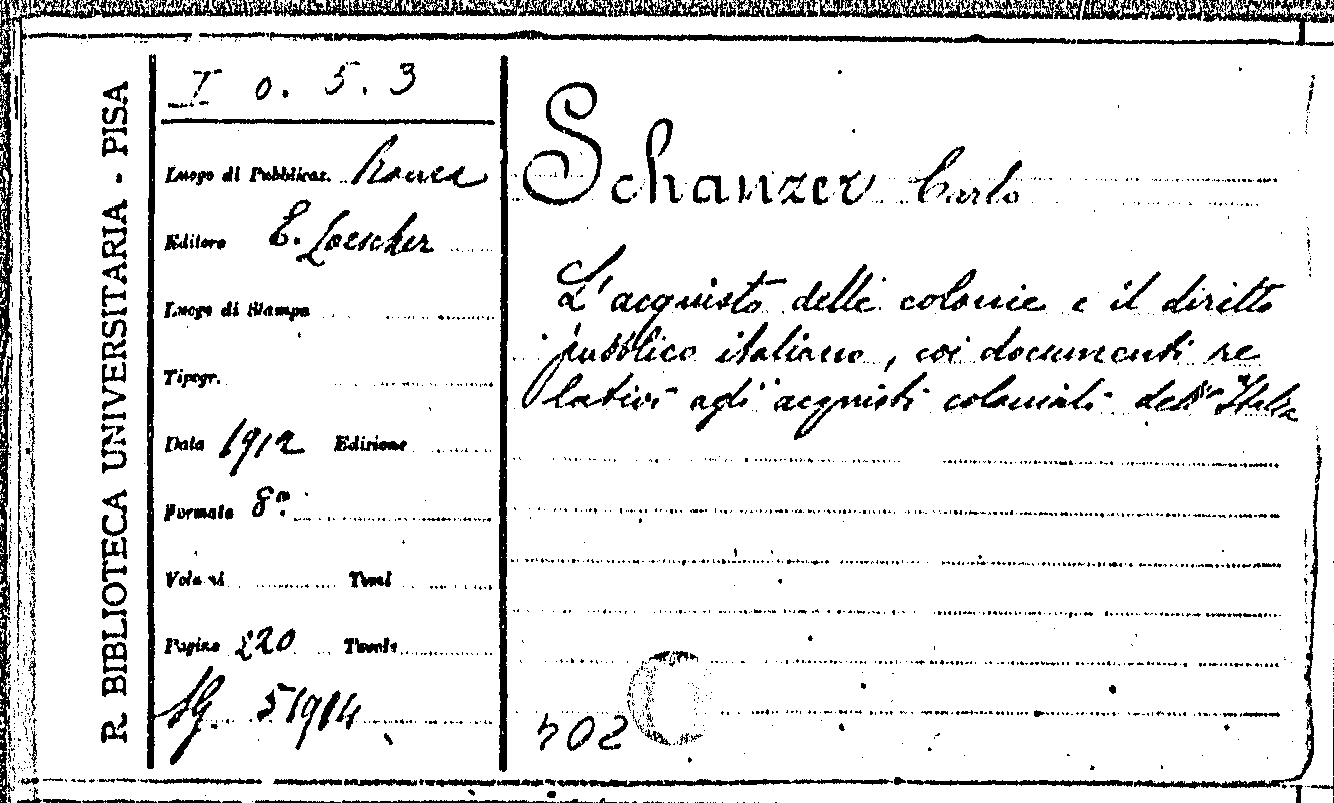 R. BIBLIOTECA UNIVERSITARIA - PISA
I o. 5. 3
Luogo di Pubblicaz. Roma
Editore E. Loescher
Luogo di Stampa
Tipogr.
Data 1912 Edizione
Formato 8º
Volumi Tomi
Pagine 220 Tavole
51914
Schanzer Carlo
L'acquisto delle colonie e il diritto
pubblico italiano, coi documenti re
lativi agli acquisti coloniali dell'Italia
702